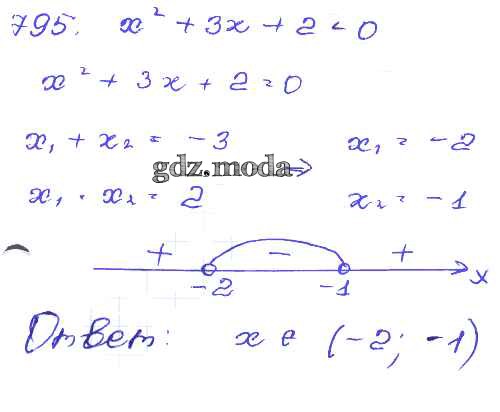 795. x² + 3x + 2 < 0
x² + 3x + 2 = 0
x₁ + x₂ = -3
x₁ = -2
gdz.moda ⇒
x₁ · x₂ = 2
x₂ = -1
+ - +
-2 -1 x
Ответ: x ∈ (-2; -1)